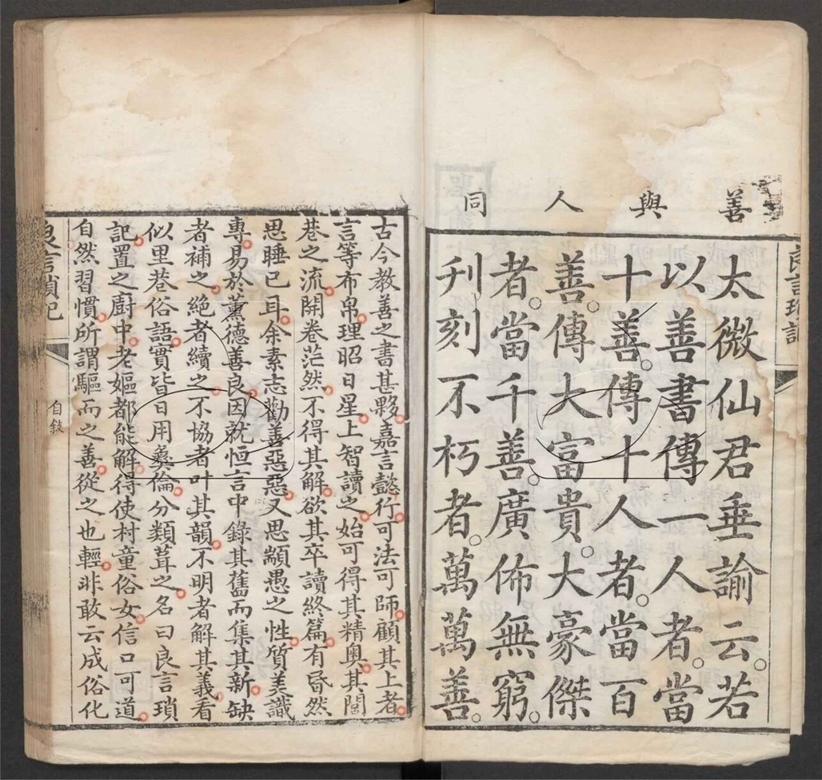 善與人同
太微仙君垂諭云。若
以善書傳一人者。當
十善。傳十人者。當百
善。傳大富貴。大豪傑
者。當千善。廣佈無窮。
刋刻不朽者。萬萬善。
良言瑣記
古今教善之書甚夥。嘉言懿行。可法可師。顧其上者。
言等布帛。理昭日星。上智讀之。始可得其精奧。其閭
巷之流。開卷茫然。不得其解。欲其卒讀終篇。有昏然
思睡已耳。余素志勸善惡惡。又思顓愚之性。質美識
專。易於薰德善良。因就恒言中。錄其舊而集其新。缺
者補之。絶者續之。不協者叶其韻。不明者解其義。看
似里巷俗語。實皆日用彞倫。分類葺之。名曰良言瑣
記。置之廚中。老嫗都能解。得使村童俗女。信口可道。
自然習慣。所謂驅而之善。從之也輕。非敢云成俗化
良言瑣記
自敍